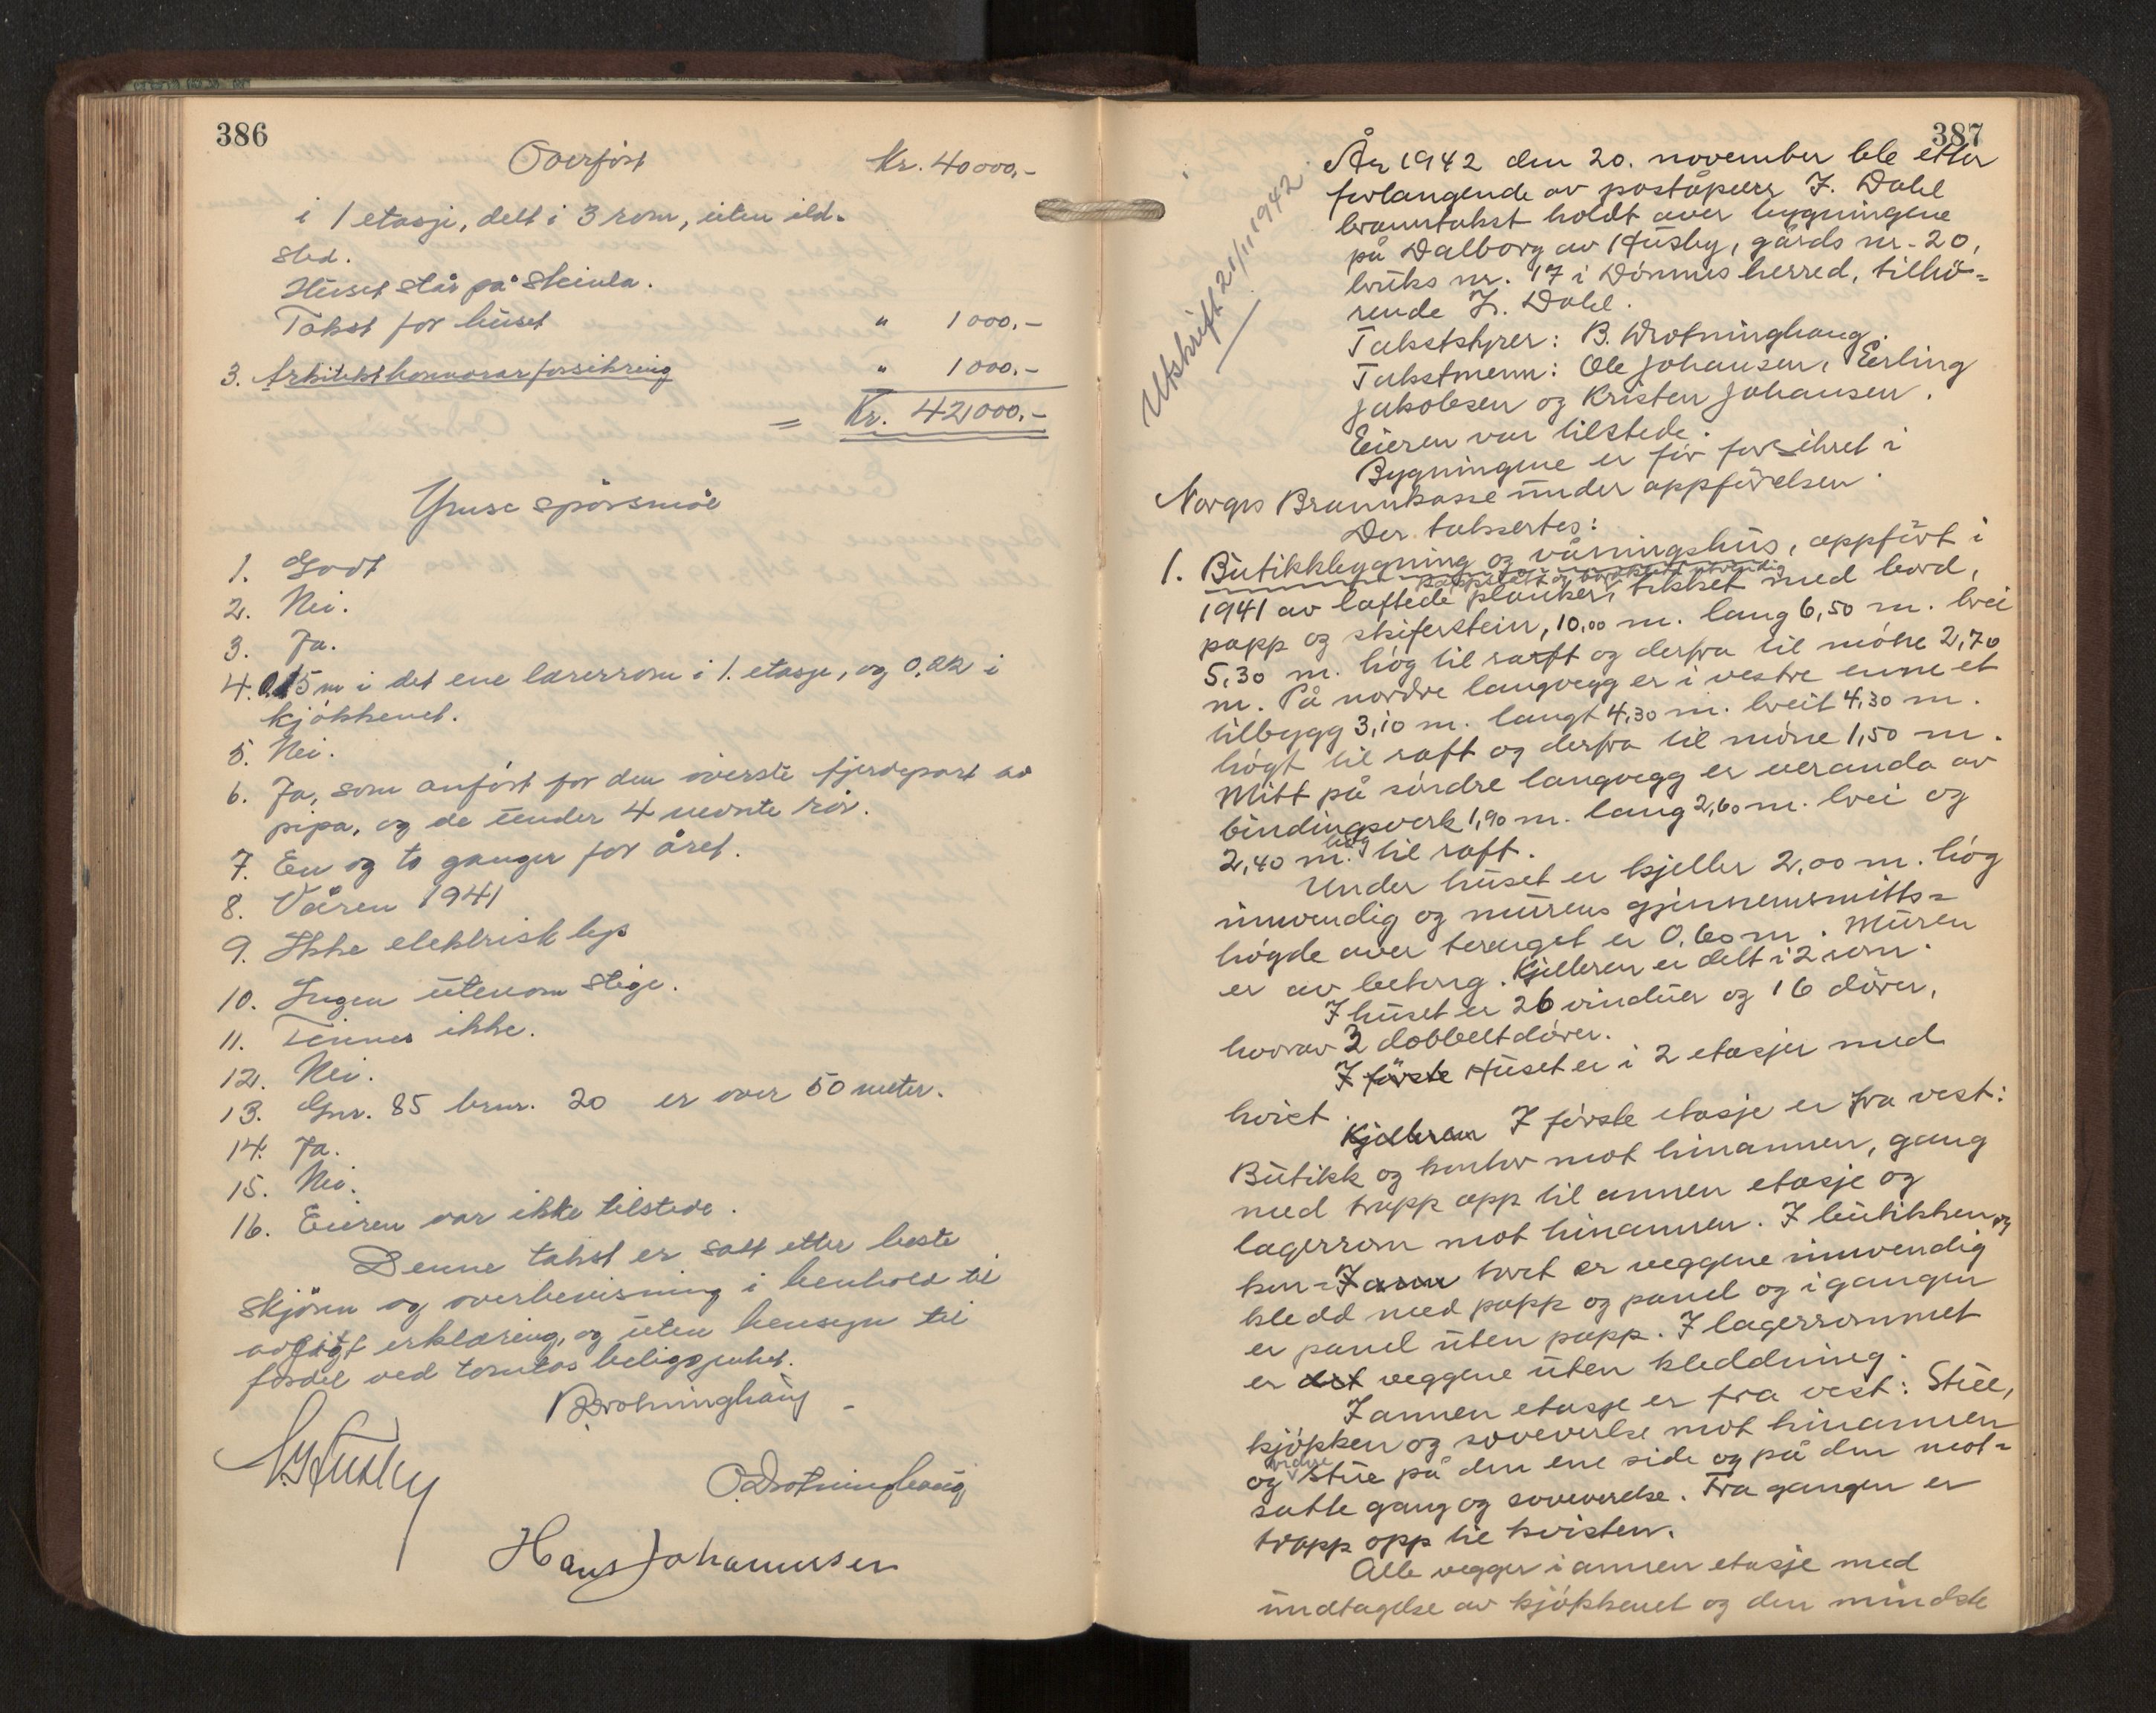 386
Overført Kr. 40000,-
i 1 etasje, delt i 3 rom, uten ild-
sted.
Huset står på steinla.
Takst for huset " 1000,-
3. Arkitekthonnorarforsikring " 1000,-
= Kr. 42,000,-
Ymse spørsmål
1. Godt
2. Nei.
3. Ja.
4. 0.15 m i det ene lærerrom i 1. etasje, og 0,22 i
kjøkkenet.
5. Nei.
6. Ja, som anført for den øverste fjerdepart av
pipa, og de under 4 nevnte rör.
7. En og to ganger for året.
8. Våren 1941
9. Ikke elektrisk lys
10. Ingen utenom stige.
11. Finnes ikke.
12. Nei.
13. Gnr. 85 brnr. 20 er over 50 meter.
14. Ja.
15. Nei.
16. Eieren var ikke tilstede.
Denne takst er satt etter beste
skjönn og overbevisning i henhold til
avgitt erklæring, og uten hensyn til
fordel ved tomtas beliggenhet.
B. Drotninghaug
Husby
O. Drotninghaug
Hans Johannessen
387
Utskrift 21/11 1942
År 1942 den 20. november ble etter
forlangende av poståpner J. Dahl
branntakst holdt over bygningene
på Dalborg av Husby, gårds nr. 20,
bruks nr. 17 i Dønnes herred, tilhö-
rende J. Dahl.
Takststyrer: B. Drotninghaug.
Takstmenn: Ole Johansen, Erling
Jakobsen og Kristen Johansen.
Eieren var tilstede.
Bygningene er för forsikret i
Norges Brannkasse under oppförelsen.
Der takseres:
1. Butikkbygning og våningshus, oppfört i
1941 av laftede planker, tekket med bord,
papp og skiferstein, 10,00 m. lang 6,50 m. brei
5,30 m. høg til raft og derfra til møne 2,70
m. På nordre langvegg er i vestre enne et
tilbygg 3,10 m. langt 4,30 m. breit 4,30 m.
høgt til raft og derfra til møne 1,50 m.
Mitt på søndre langvegg er veranda av
bindingsverk 1,90 m. lang 2,60 m. brei og
2,40 m. høg til raft.
Under huset er kjeller 2,00 m. høg
innvendig og murens gjennemsnitts-
høgde over terænget er 0,60 m. Muren
er av betong. Kjelleren er delt i 2 rom.
I huset er 26 vinduer og 16 dører,
hvorav 3 dobbeltdører.
I første Huset er i 2 etasjer med
kvist.
Kjelleren I første etasje er fra vest:
Butikk og kontor mot hinannen, gang
med trapp opp til annen etasje og
lagerrom mot hinannen. I butikken og
kon- I ann toret er veggene innvendig
kledd med papp og panel og i gangen
er panel uten papp. I lagerrommet
er det veggene uten kleddning.
I annen etasje er fra vest: Stue,
kjøkken og soveverelse mot hinannen
og videre stue på den ene side og på den mot-
satte gang og soveverelse. Fra gangen er
trapp opp til kvisten.
Alle vegger i annen etasje med
undtagelse av kjøkkenet og den mindste